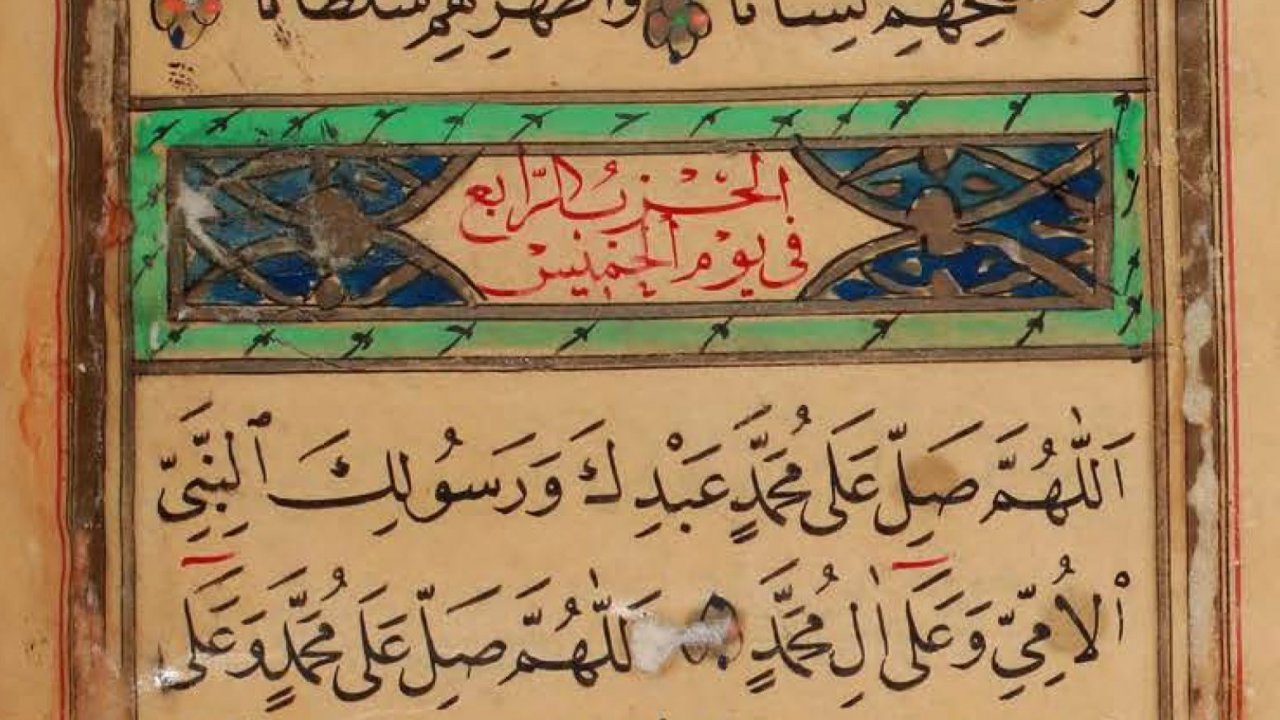 حِهِمْ لِسَانًا وَأَظْهَرِهِمْ سُلْطَانًا
اَلْحِزْبُ الرَّابِعُ
فِى يَوْمِ الْخَمِيْسِ
اَللّٰهُمَّ صَلِّ عَلَى مُحَمَّدٍ عَبْدِكَ وَرَسُولِكَ ٱلنَّبِيِّ
ٱلْاُمِّيِّ وَعَلَى اٰلِ مُحَمَّدٍ اَللّٰهُمَّ صَلِّ عَلَى مُحَمَّدٍ وَعَلَى